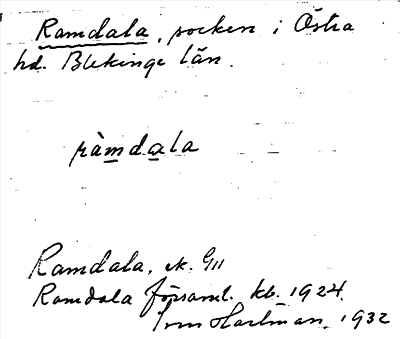 Ramdala, socken i Östra
hd. Blekinge län.
ràmdala
Ramdala, sk. G11
Ramdala församl. kb. 1924.
Hartman, 1932